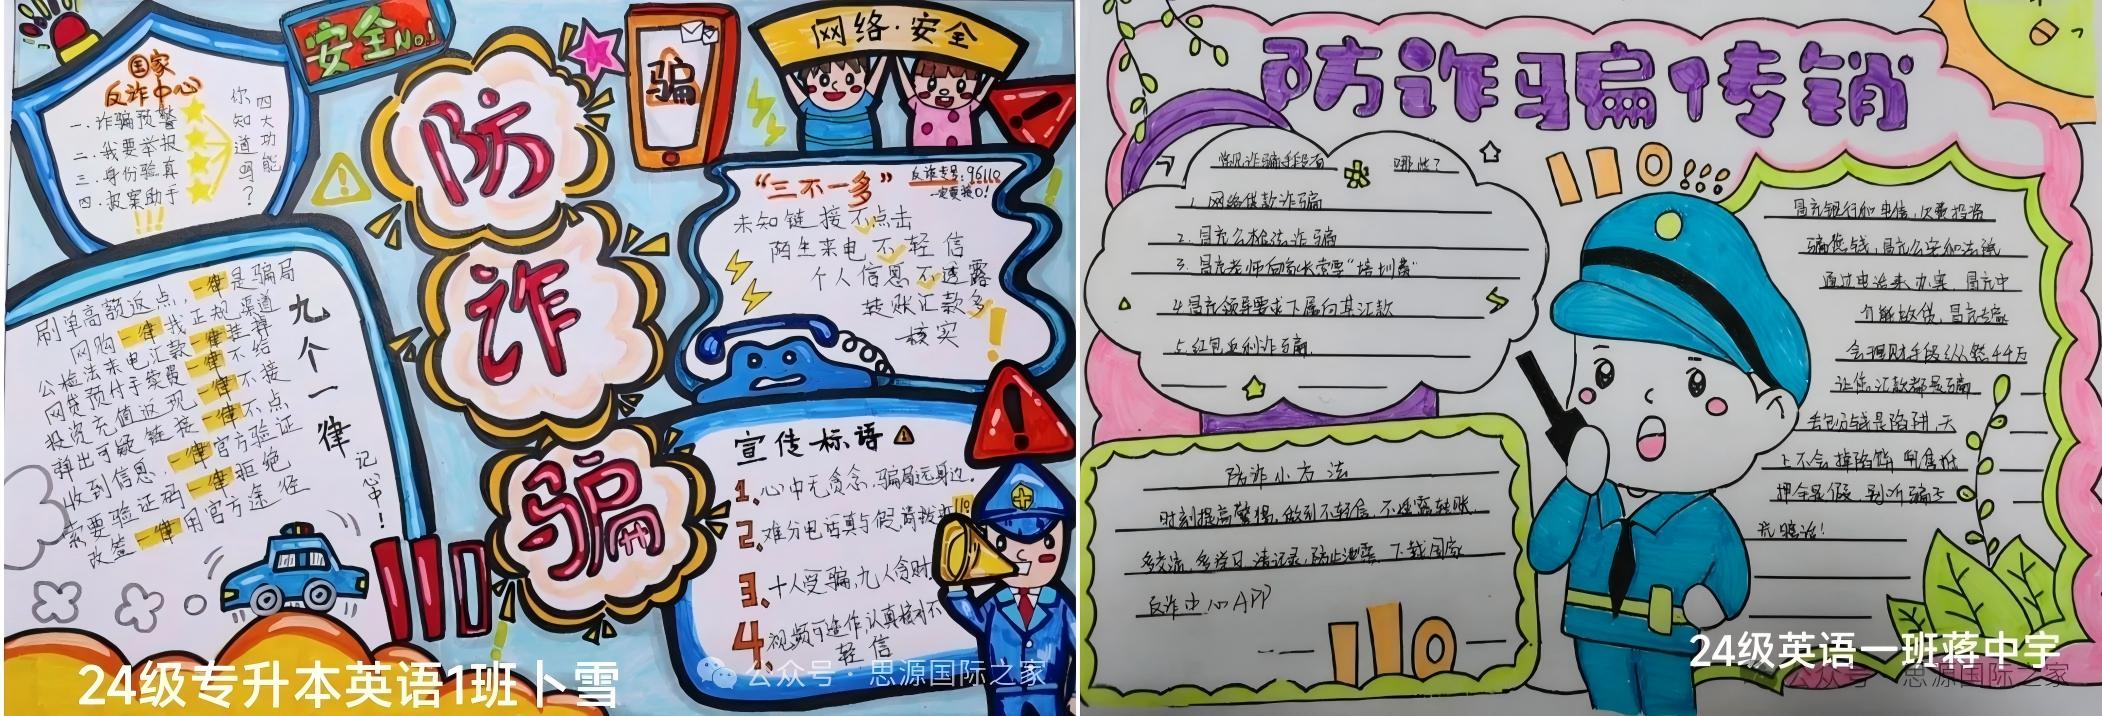 国家
反诈中心
一.诈骗预警
二.我要举报
三.身份验真
四.报案助手
!!!
四大功能
你知道吗？
安全No.1
防
诈
骗
骗
网络·安全
"三不一多"
反诈专号:96110
一定要接!
未知链接不点击
陌生来电不轻信
个人信息不透露
转账汇款多
核实
九个一律
记心中!
刷单高额返点,一律是骗局
网购一律找正规渠道
公检法来电汇款一律挂掉
网贷预付手续费一律不给
投资充值返现,一律不接
弹出可疑链接一律不点
收到信息,一律官方验证
索要验证码一律拒绝
改签一律用官方途径
110
宣传标语
1.心中无贪念,骗局远身边.
2.难分电话真与假,简拨
110
3.十人受骗,九人贪财
4.视频可造作,认真核对不
轻信
24级专升本英语1班卜雪
公众号·思源国际之家
防诈骗传销
常见诈骗手段有哪些?
1.网络贷款诈骗
2.冒充公检法诈骗
3.冒充老师向家长索要"培训费"
4.冒充领导要求下属向其汇款
5.红包返利诈骗.
110!!!
冒充银行和电信,次要投资
骗您钱,冒充公安和法院
通过电话来办案,冒充中
介能放贷,冒充专家
会理财手段
让你汇款都是骗
丢包分钱是陷阱,天
上不会掉馅饼
押金是假,别听骗子
充瞎话!
防诈小方法
时刻提高警惕,做到不轻信,不透露转账.
多交流,多学习,清记录,防止泄露,下载国家
反诈中心APP
110
24级英语一班蒋中宇
公众号·思源国际之家